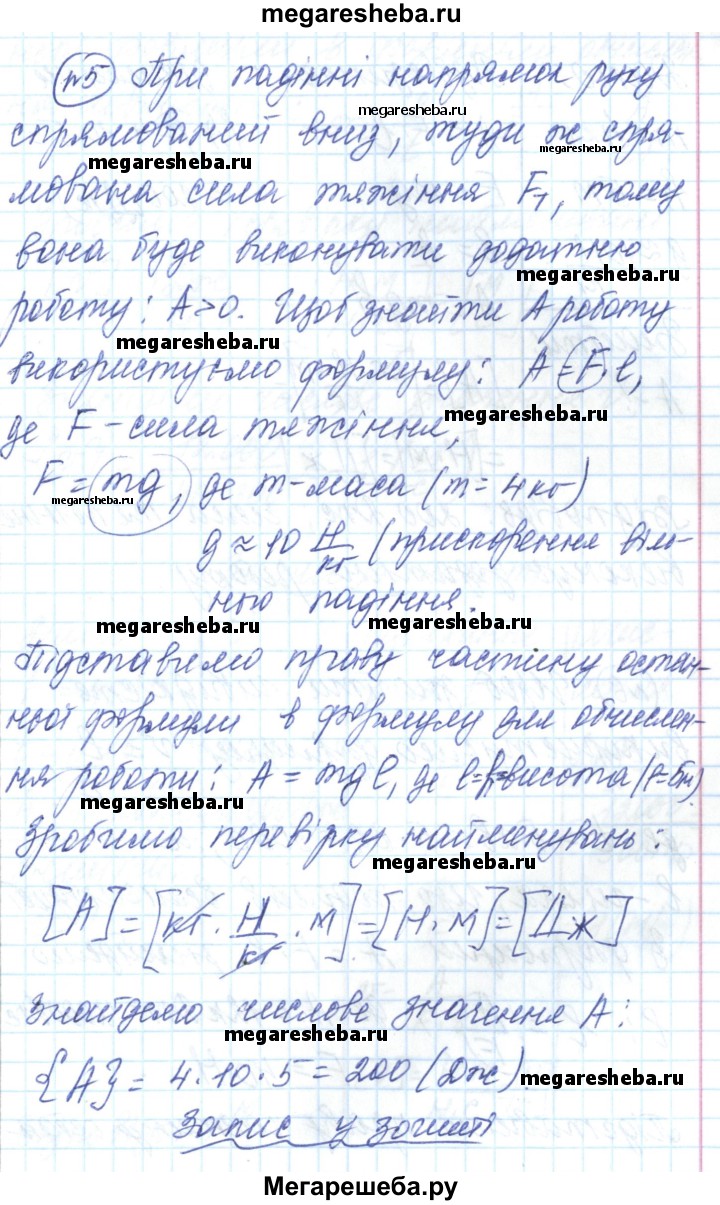 megaresheba.ru
п5 При падінні напрямок руху
megaresheba.ru
спрямований вниз, туди ж спря-
megaresheba.ru
megaresheba.ru
мована сила тяжіння F₁, тому
вона буде виконувати додатню
megaresheba.ru
роботу: A>0. Щоб знайти A роботу
megaresheba.ru
використуємо формулу: A = F · l,
megaresheba.ru
де F - сила тяжіння,
F = mg, де m - маса (m = 4 кг)
megaresheba.ru
g ≈ 10 Н/кг (прискорення віль-
ною падіння.
megaresheba.ru
megaresheba.ru
Підставимо праву частину остан-
ньої формули в формулу для обчислен-
ня роботи: A = mgl, де l=h=висота (l=5м).
megaresheba.ru
Зробимо перевірку найменувань:
megaresheba.ru
[A] = [кг · Н/кг · м] = [Н · м] = [Дж]
Знайдемо числове значення A:
megaresheba.ru
{A} = 4 · 10 · 5 = 200 (Дж).
megaresheba.ru
Запис у зошиті
Мегарешеба.ру